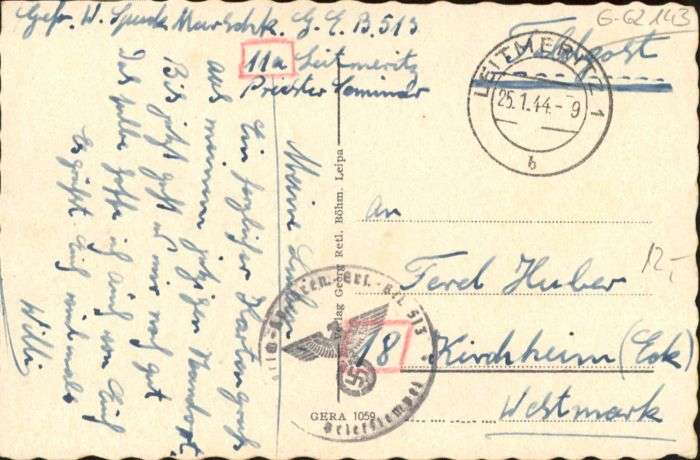 Gefr. W. Marschk. G. E. B. 513
11a Leitmeritz
Priester Seminar
G-G2 143
Feldpost
LEITMERITZ 1
25.1.44.-9
b
Meine Lieben
Ein herzlicher Kartengruß
aus meinem jetzigen Standort.
Bis jetzt geht es mir noch gut
Das selbe hoffe ich auch von Euch
Es grüßt Euch nochmals
Willi
Verlag Georg Retl. Böhm. Leipa.
GERA 1059
513
Briefstempel
An
Ferd Huber
12,-
18 Kirchheim (Eck)
Westmark